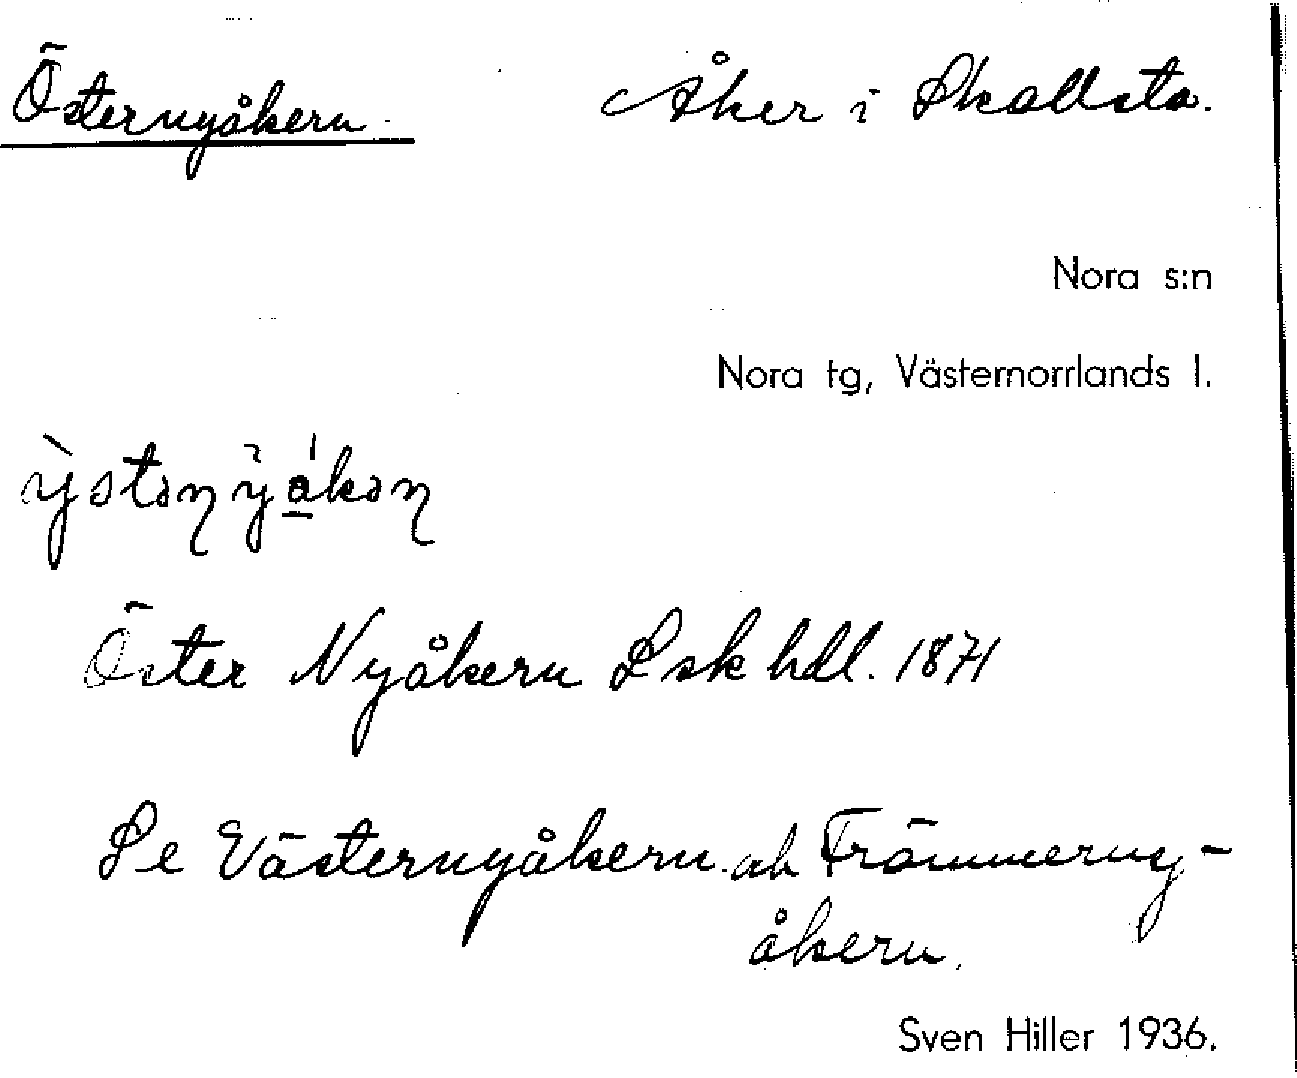 Östernyåkern. Åker i Skallsta.
Nora s:n
Nora tg, Västernorrlands l.
Öster Nyåkern Lsk hdl. 1871
Se Västernyåkern och Främmerny-
åkern.
Sven Hiller 1936.